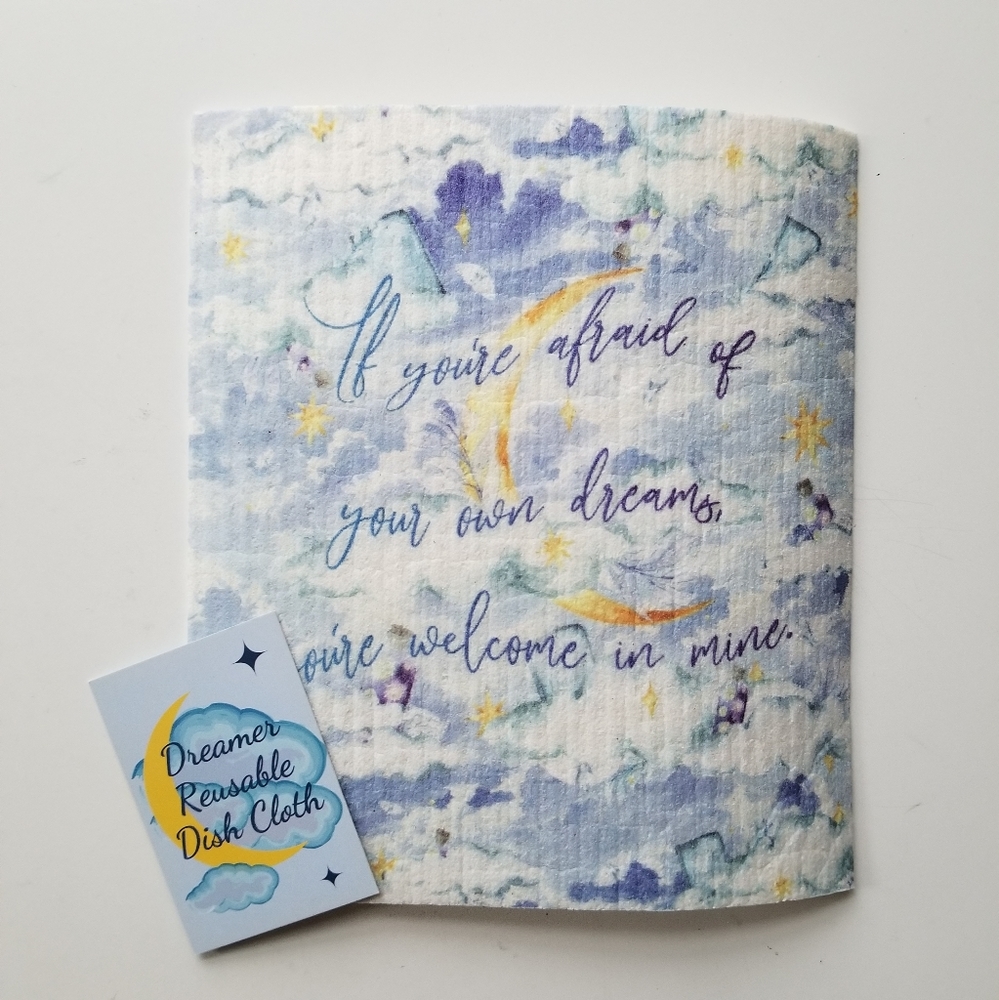 If you're afraid of
your own dreams,
you're welcome in mine.
Dreamer
Reusable
Dish Cloth